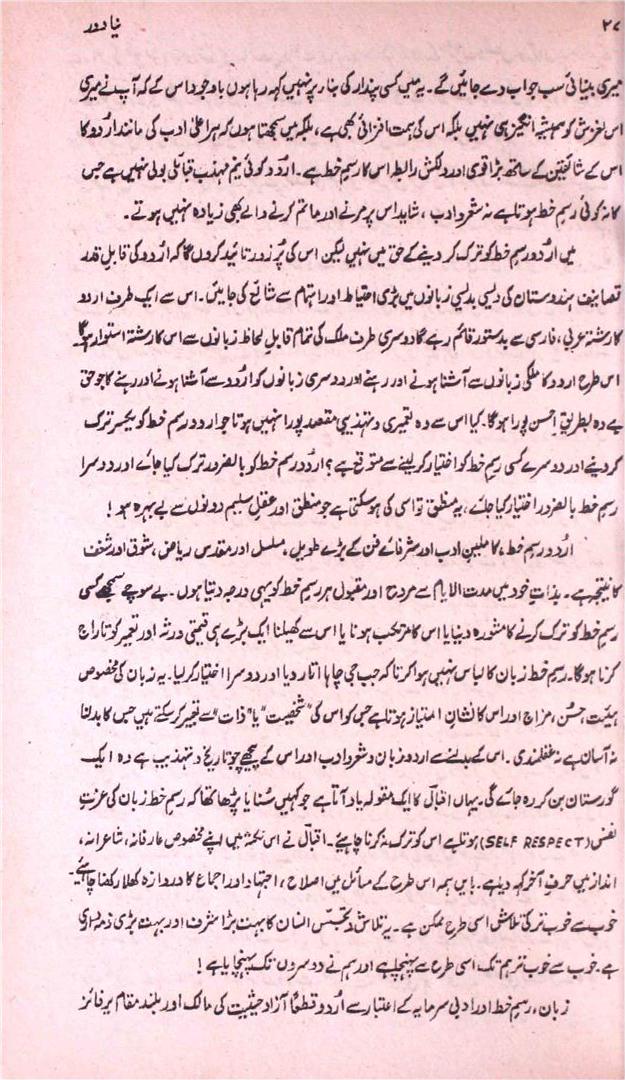 ۲۷
نیا دور
میری بینائی سب جواب دے جائیں گے۔ یہ میں کسی پندار کی بنا پر نہیں کہہ رہا ہوں باوجود اس کے کہ آپ نے میری
اس لغزش کو ہمیشہ انگیز ہی نہیں بلکہ اس کی ہمت افزائی بھی ہے، بلکہ میں سمجھتا ہوں کہ ہر اعلیٰ ادب کی مانند اردو کا
اس کے شائقین کے ساتھ بڑا قوی اور دلکش رابطہ اس کا رسم خط ہے۔ اردو کوئی نیم مہذب قبائلی بولی نہیں ہے جس
کا نہ کوئی رسم خط ہوتا ہے نہ شعر و ادب، شاید اس پر مرنے اور ماتم کرنے والے بھی زیادہ نہیں ہوتے۔
میں اردو رسم خط کو ترک کر دینے کے حق میں نہیں لیکن اس کی پُر زور تائید کروں گا کہ اردو کی قابلِ قدر
تصانیف ہندوستان کی دیسی بدیسی زبانوں میں بڑی احتیاط اور اہتمام سے شائع کی جائیں۔ اس سے ایک طرف اردو
کا رشتہ عربی، فارسی سے بدستور قائم رہے گا دوسری طرف ملک کی تمام قابلِ لحاظ زبانوں سے اس کا رشتہ استوار ہوگا۔
اس طرح اردو کا ملکی زبانوں سے آشنا ہونے اور رہنے اور دوسری زبانوں کو اردو سے آشنا ہونے اور رہنے کا جو حق
ہے وہ بطریقِ احسن پورا ہوگا۔ کیا اس سے وہ تعمیری و تہذیبی مقصد پورا نہیں ہوتا جو اردو رسم خط کو یکسر ترک
کر دینے اور دوسرے کسی رسم خط کو اختیار کر لینے سے متوقع ہے؟ اردو رسم خط کو بالضرور ترک کیا جائے اور دوسرا
رسم خط بالضرور اختیار کیا جائے، یہ منطق تو اسی کی ہو سکتی ہے جو منطق اور عقلِ سلیم دونوں سے بے بہرہ ہو!
اردو رسم خط، کاملینِ ادب اور شرفائے فن کے بڑے طویل، مسلسل اور مقدس ریاض، شوق اور شغف
کا نتیجہ ہے۔ بذاتِ خود میں مدت الایام سے مروج اور مقبول ہر رسم خط کو یہی درجہ دیتا ہوں۔ بے سوچے سمجھے کسی
رسم خط کو ترک کرنے کا مشورہ دینا یا اس کا مرتکب ہونا یا اس سے کھیلنا ایک بڑے ہی قیمتی ورثہ اور تعمیر کو تاراج
کرنا ہوگا۔ رسم خط زبان کا لباس نہیں ہوا کرتا کہ جب جی چاہا اتار دیا اور دوسرا اختیار کر لیا۔ یہ زبان کی مخصوص
ہیئت، حسن، مزاج اور اس کا نشانِ امتیاز ہوتا ہے جس کو اس کی "شخصیت" یا "ذات" سے تعبیر کر سکتے ہیں جس کا بدلنا
نہ آسان ہے نہ عقلمندی۔ اس کے بدلنے سے اردو زبان و شعر و ادب اور اس کے پیچھے جو تاریخ و تہذیب ہے وہ ایک
گورستان بن کر رہ جائے گی۔ یہاں اقبالؔ کا ایک مقولہ یاد آتا ہے جو کہیں سُنا یا پڑھا تھا کہ رسم خط زبان کی عزتِ
نفس (SELF RESPECT) ہوتا ہے اس کو ترک نہ کرنا چاہیئے۔ اقبالؔ نے اس نکتہ میں اپنے مخصوص عارفانہ، شاعرانہ،
انداز میں حرفِ آخر کہہ دیا ہے۔ بایں ہمہ اس طرح کے مسائل میں اصلاح، اجتہاد اور اجماع کا دروازہ کھلا رکھنا چاہیے۔
خوب سے خوب تر کی تلاش اسی طرح ممکن ہے۔ یہ تلاش و تجسس انسان کا بہت بڑا شرف اور بہت بڑی ذمہ داری
ہے۔ خوب سے خوب تر ہم تک اسی طرح سے پہنچا ہے اور ہم نے دوسروں تک پہنچایا ہے!
زبان، رسم خط اور ادبی سرمایہ کے اعتبار سے اردو قطعاً آزاد حیثیت کی مالک اور بلند مقام پر فائز